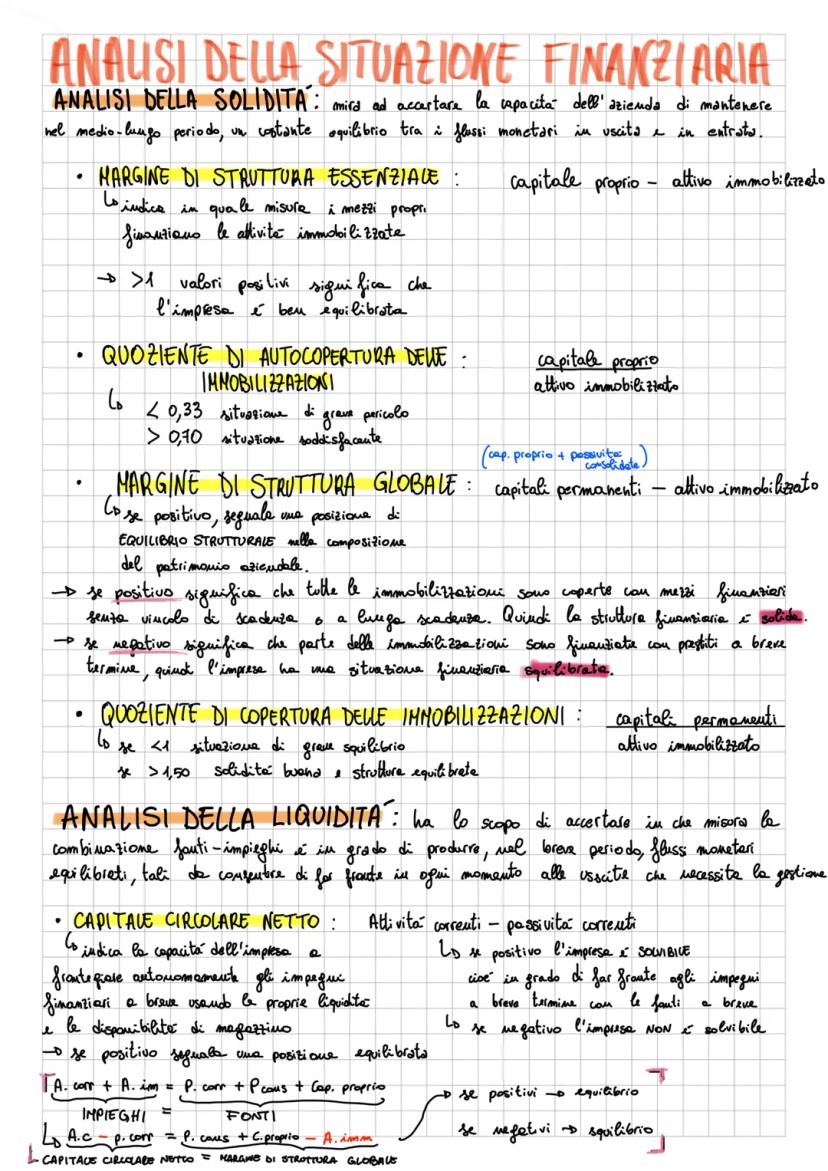 ANALISI DELLA SITUAZIONE FINANZIARIA
ANALISI DELLA SOLIDITÁ: mira ad accertare la capacitá dell'azienda di mantenere
nel medio-lungo periodo, un costante equilibrio tra i flussi monetari in uscita e in entrata.
• MARGINE DI STRUTTURA ESSENZIALE : capitale proprio - attivo immobilizzato
↳ indica in quale misura i mezzi propri
finanziano le attivitá immobilizzate
→ >1 valori positivi significa che
l'impresa é ben equilibrata
• QUOZIENTE DI AUTOCOPERTURA DELLE IMMOBILIZZAZIONI : capitale proprio / attivo immobilizzato
↳ < 0,33 situazione di grave pericolo
> 0,70 situazione soddisfacente
(cap. proprio + passivitá consolidate)
• MARGINE DI STRUTTURA GLOBALE : capitali permanenti - attivo immobilizzato
↳ se positivo, segnala una posizione di
EQUILIBRIO STRUTTURALE nella composizione
del patrimonio aziendale.
→ se positivo significa che tutte le immobilizzazioni sono coperte con mezzi finanziari
senza vincolo di scadenza o a lunga scadenza. Quindi la struttura finanziaria é solida.
→ se negativo significa che parte delle immobilizzazioni sono finanziate con prestiti a breve
termine, quindi l'impresa ha una situazione finanziaria squilibrata.
• QUOZIENTE DI COPERTURA DELLE IMMOBILIZZAZIONI : capitali permanenti / attivo immobilizzato
↳ se <1 situazione di grave squilibrio
se >1,50 soliditá buona e struttura equilibrata
ANALISI DELLA LIQUIDITÁ: ha lo scopo di accertare in che misura la
combinazione fonti-impieghi é in grado di produrre, nel breve periodo, flussi monetari
equilibrati, tali da consentire di far fronte in ogni momento alle usscite che necessita la gestione
• CAPITALE CIRCOLARE NETTO : Attivitá correnti - passivitá correnti
↳ indica la capacitá dell'impresa a
frontegiare autonomamente gli impegni
finanziari a breve usando le proprie liquiditá
e le disponibilitá di magazzino
→ se positivo segnala una posizione equilibrata
↳ se positivo l'impresa é SOLVIBILE
cioé in grado di far fronte agli impegni
a breve termine con le fonti a breve
↳ se negativo l'impresa NON é solvibile
A. corr + A. im = P. corr + P cons + Cap. proprio
IMPIEGHI = FONTI
↳ A.c - p. corr = P. cons + C. proprio - A. imm
CAPITALE CIRCOLARE NETTO = MARGINE DI STRUTTURA GLOBALE
→ se positivi → equilibrio
se negativi → squilibrio